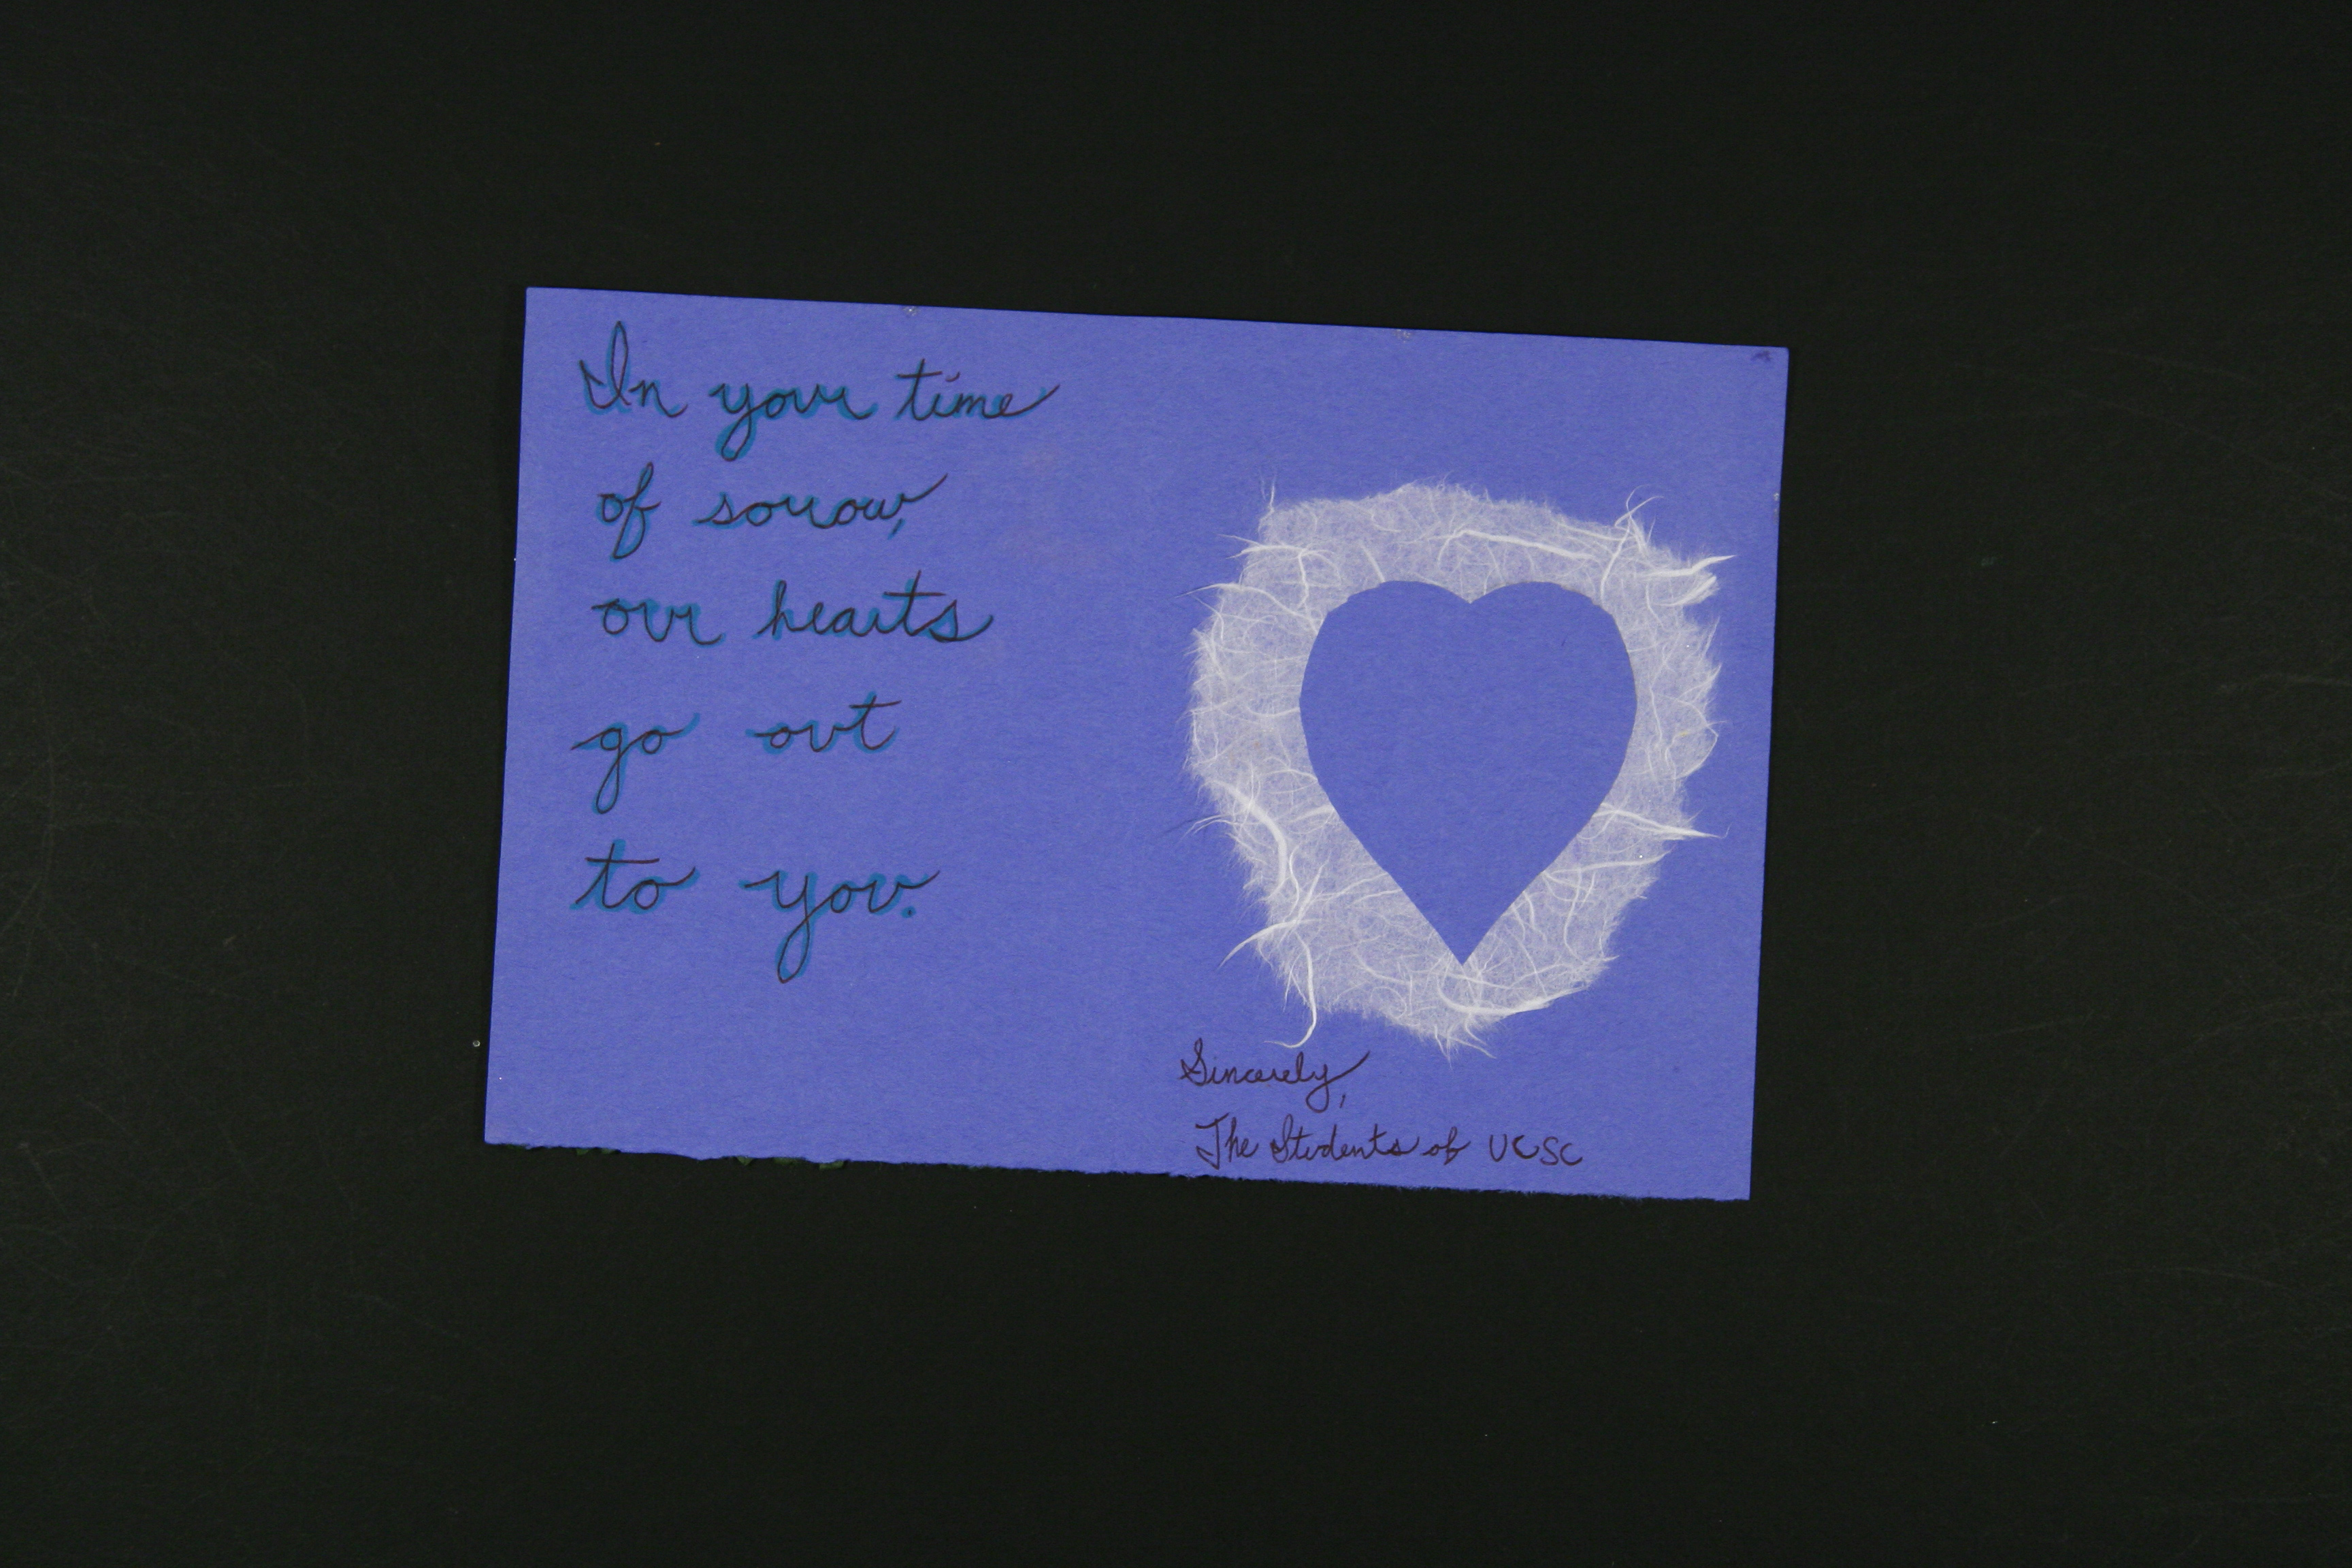 In your time
of sorrow,
our hearts
go out
to you.
Sincerely,
The Students of UCSC